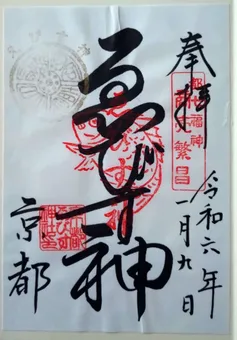 奉拝
都七福神
商売繁昌
令和六年
一月九日
ゑびす神
京都